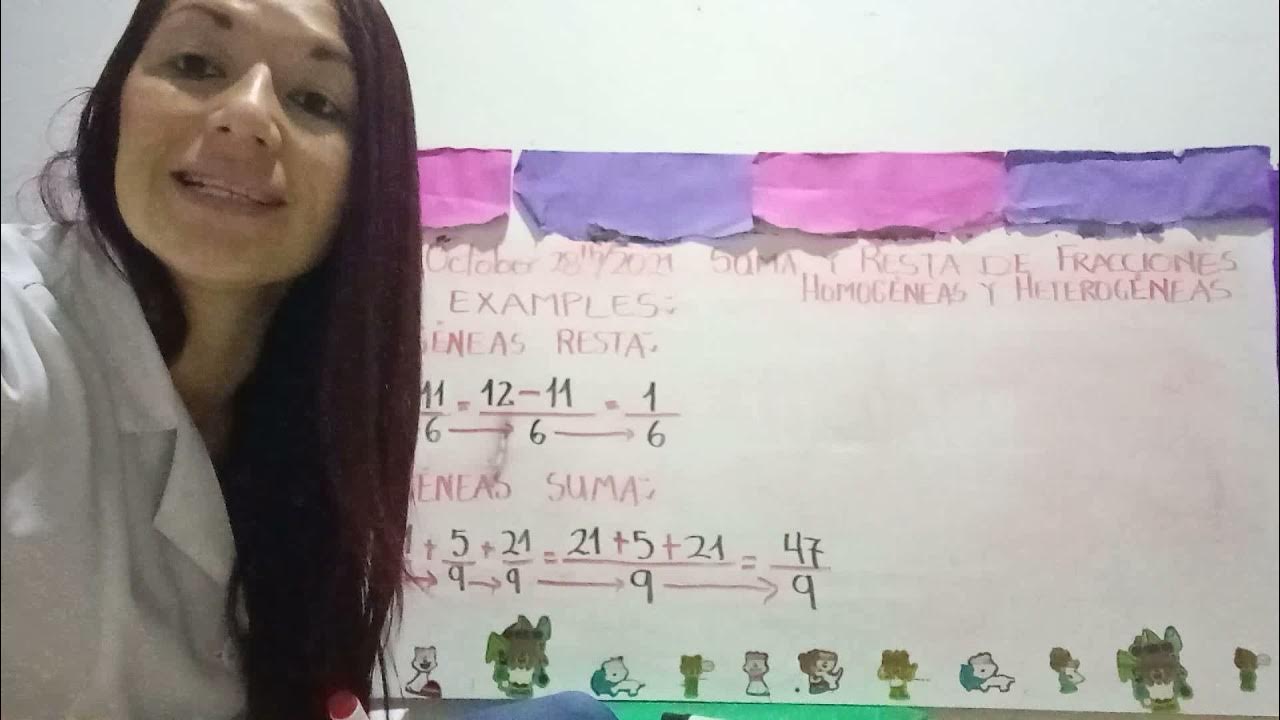 October 28th/2021 SUMA Y RESTA DE FRACCIONES
HOMOGÉNEAS Y HETEROGÉNEAS
EXAMPLES:
ÉNEAS RESTA:
11/6 = 12-11/6 = 1/6
ÉNEAS SUMA:
+ 5/9 + 21/9 = 21+5+21/9 = 47/9